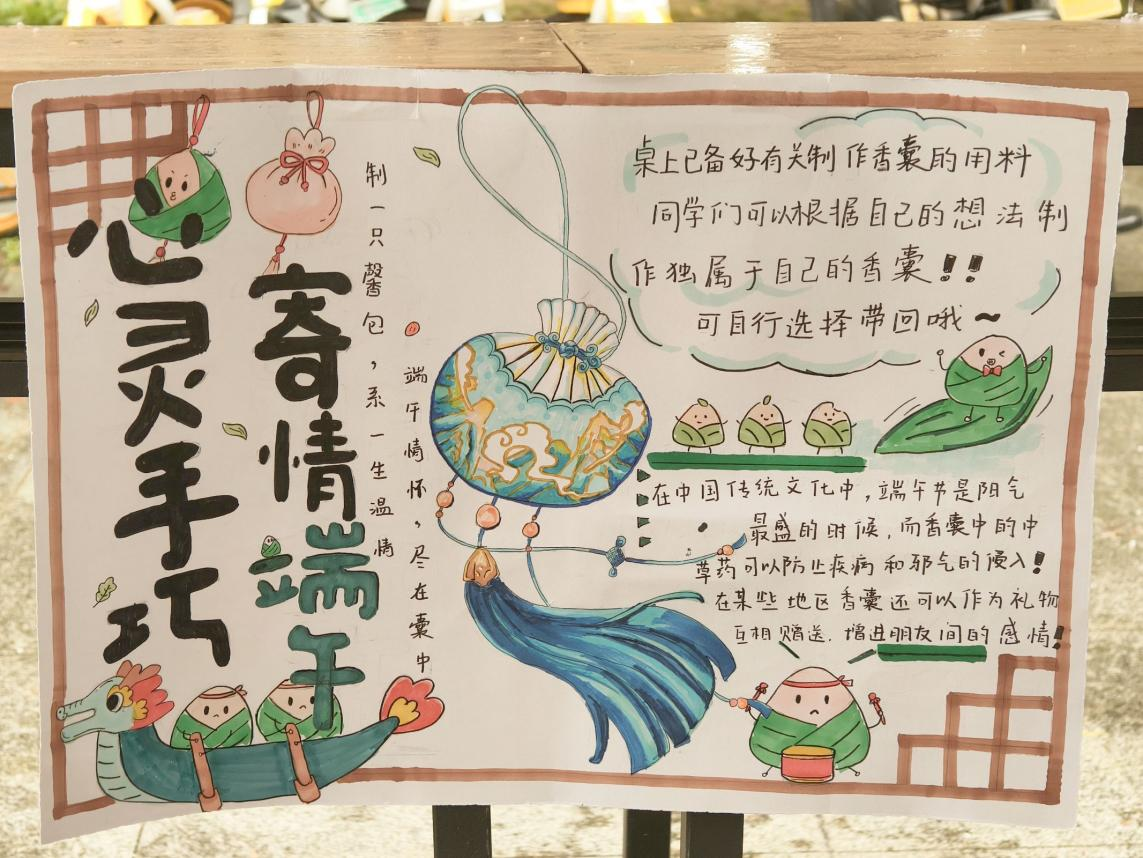 心灵手巧
寄情端午
制一只馨包，系一生温情
端午情怀，尽在囊中
桌上已备好有关制作香囊的用料
同学们可以根据自己的想法制
作独属于自己的香囊!!
可自行选择带回哦~
在中国传统文化中,端午节是阳气
最盛的时候,而香囊中的中
草药可以防止疾病和邪气的侵入!
在某些地区香囊还可以作为礼物
互相赠送.增进朋友间的感情!